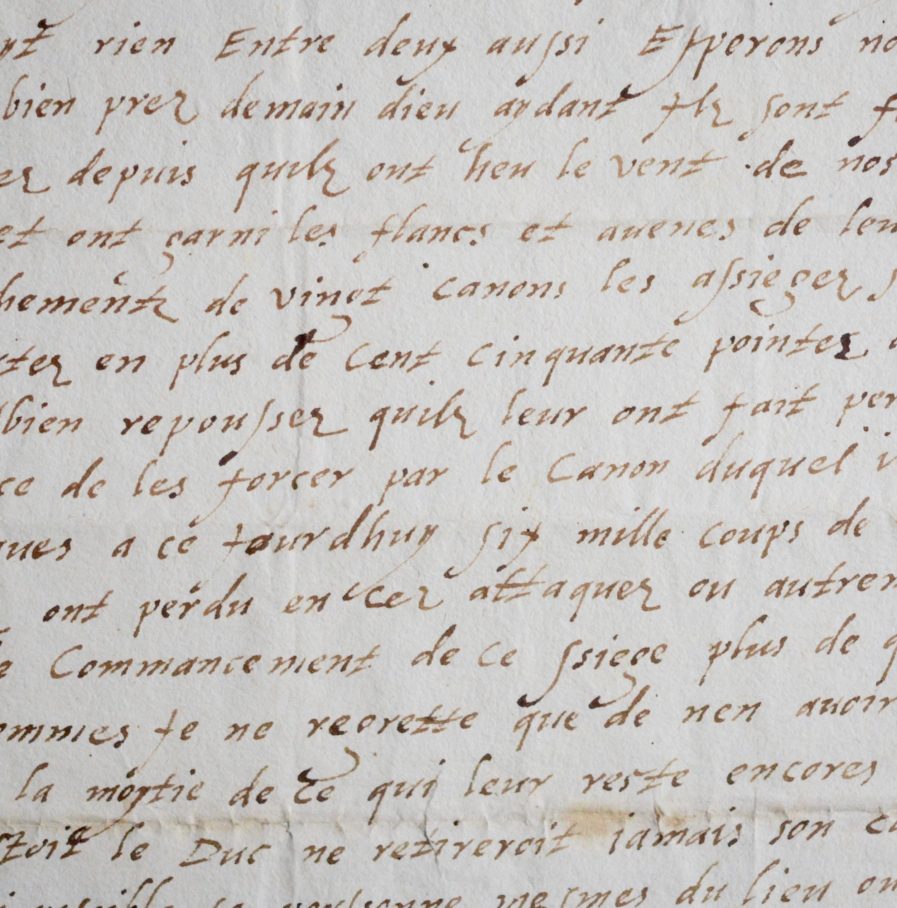 rien Entre deux aussi Esperons
bien prez demain dieu aydant Ilz sont
depuis quilz ont heu le vent de nos
et ont garni les flancs et auenes de leu
hementz de vingt canons les assiegez
tez en plus de Cent Cinquante pointez
bien repoussez quilz leur ont fait per
ce de les forcer par le Canon duquel
ques a ce Iourdhuy six mille coups de
ont perdu en cez attaquez ou autrem
Commancement de ce ssiege plus de q
ommes Ie ne regrette que de nen auoir
la moytie de ce qui leur reste encores
stoit le Duc ne retireroit iamais son ca
personne mesmes du lieu ou